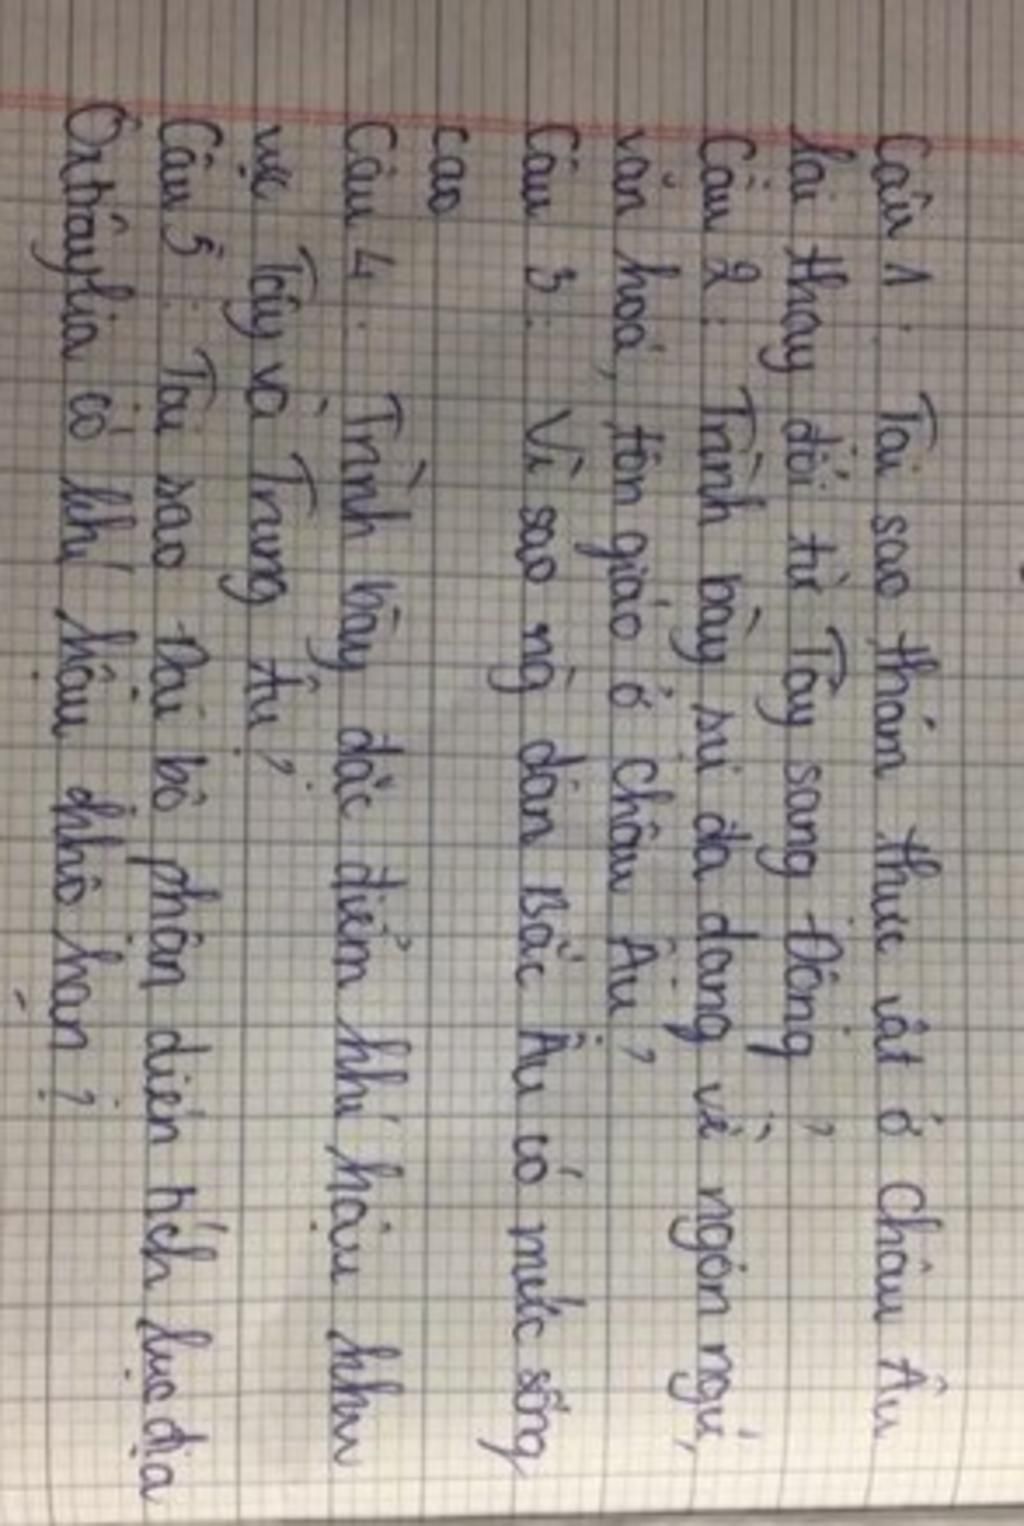 Câu 1: Tại sao thảm thực vật ở Châu Âu
lại thay đổi từ Tây sang Đông?
Câu 2: Trình bày sự đa dạng về ngôn ngữ,
văn hoá, tôn giáo ở Châu Âu?
Câu 3: Vì sao ng dân Bắc Âu có mức sống
cao
Câu 4: Trình bày đặc điểm khí hậu khu
vực Tây và Trung Âu?
Câu 5: Tại sao Đại bộ phận diện tích lục địa
Ôxtrâylia có khí hậu khô hạn?